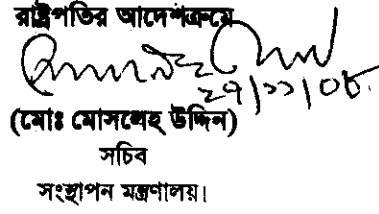 রাষ্ট্রপতির আদেশক্রমে
(মোঃ মোসলেহ উদ্দিন)
সচিব
সংস্থাপন মন্ত্রণালয়।